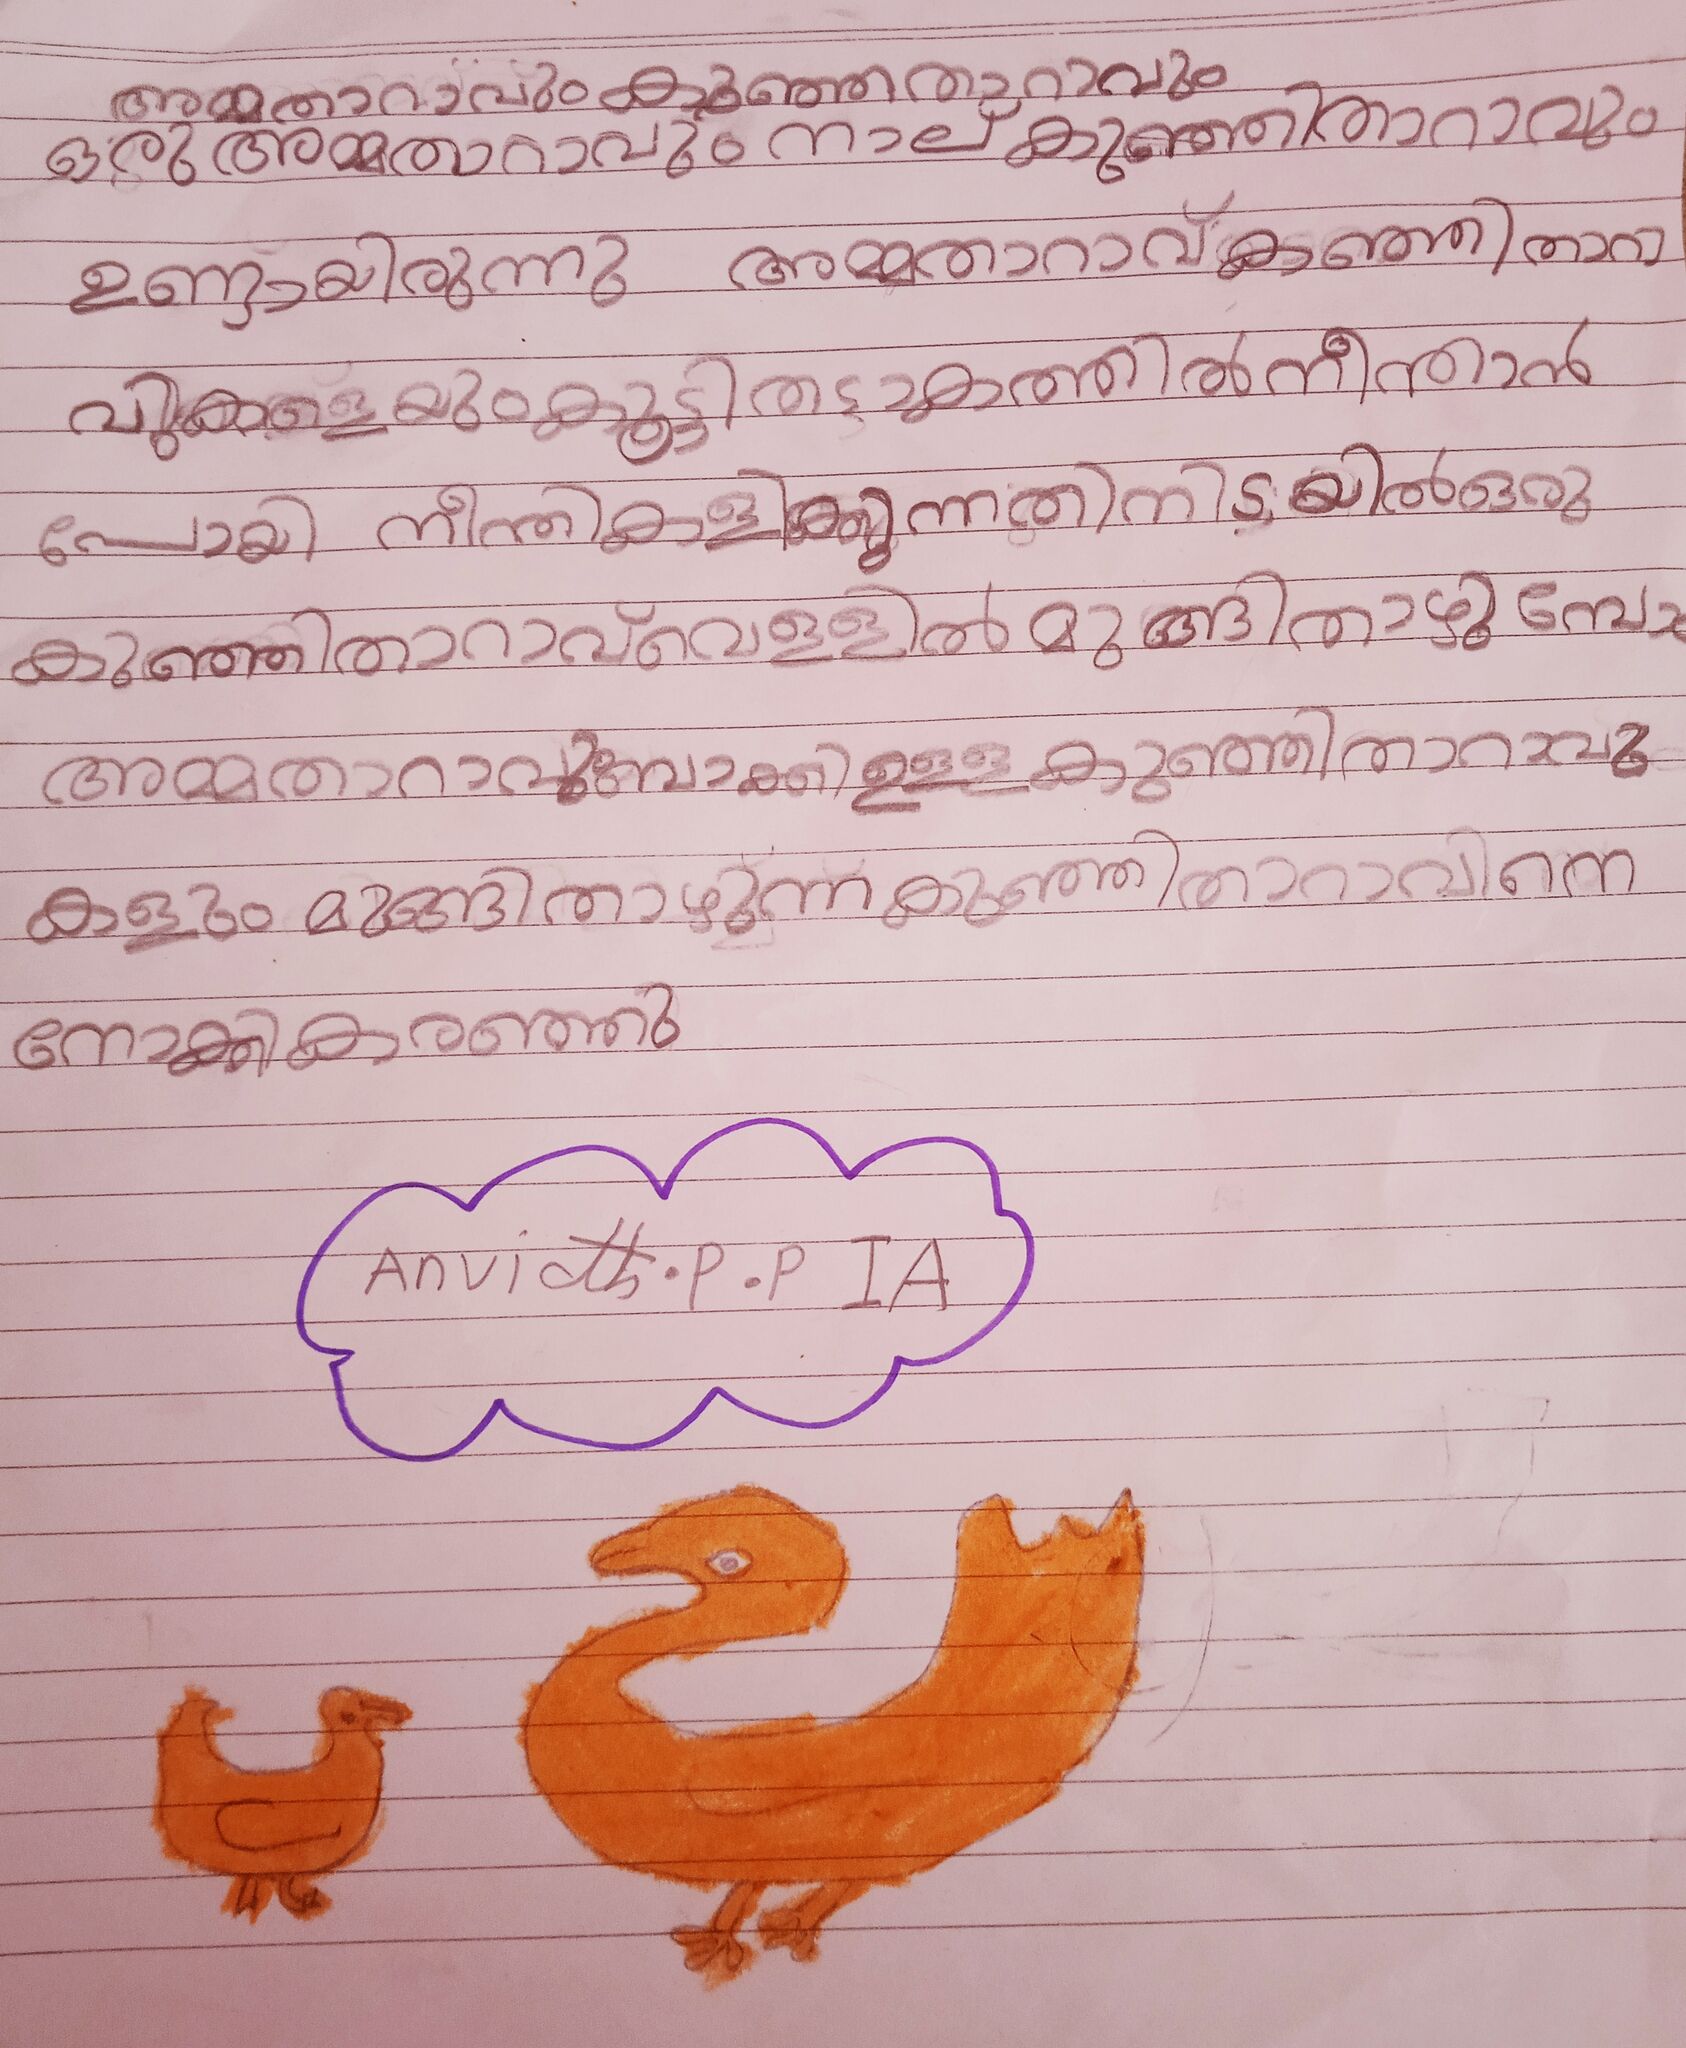 അമ്മതാറാവും കുഞ്ഞതാറാവും
ഒരു അമ്മതാറാവും നാല് കുഞ്ഞിതാറാവും
ഉണ്ടായിരുന്നു അമ്മതാറാവ് കുഞ്ഞിതാറാ
വുകളെയും കൂട്ടി തടാകത്തിൽ നീന്താൻ
പോയി നീന്തി കളിക്കുന്നതിനിടയിൽ ഒരു
കുഞ്ഞിതാറാവ് വെള്ളിൽ മുങ്ങി താഴുമ്പോ
അമ്മതാറാവും ബാക്കി ഉള്ള കുഞ്ഞിതാറാവു
കളും മുങ്ങി താഴുന്ന കുഞ്ഞിതാറാവിനെ
നോക്കി കരഞ്ഞു
P.P IA